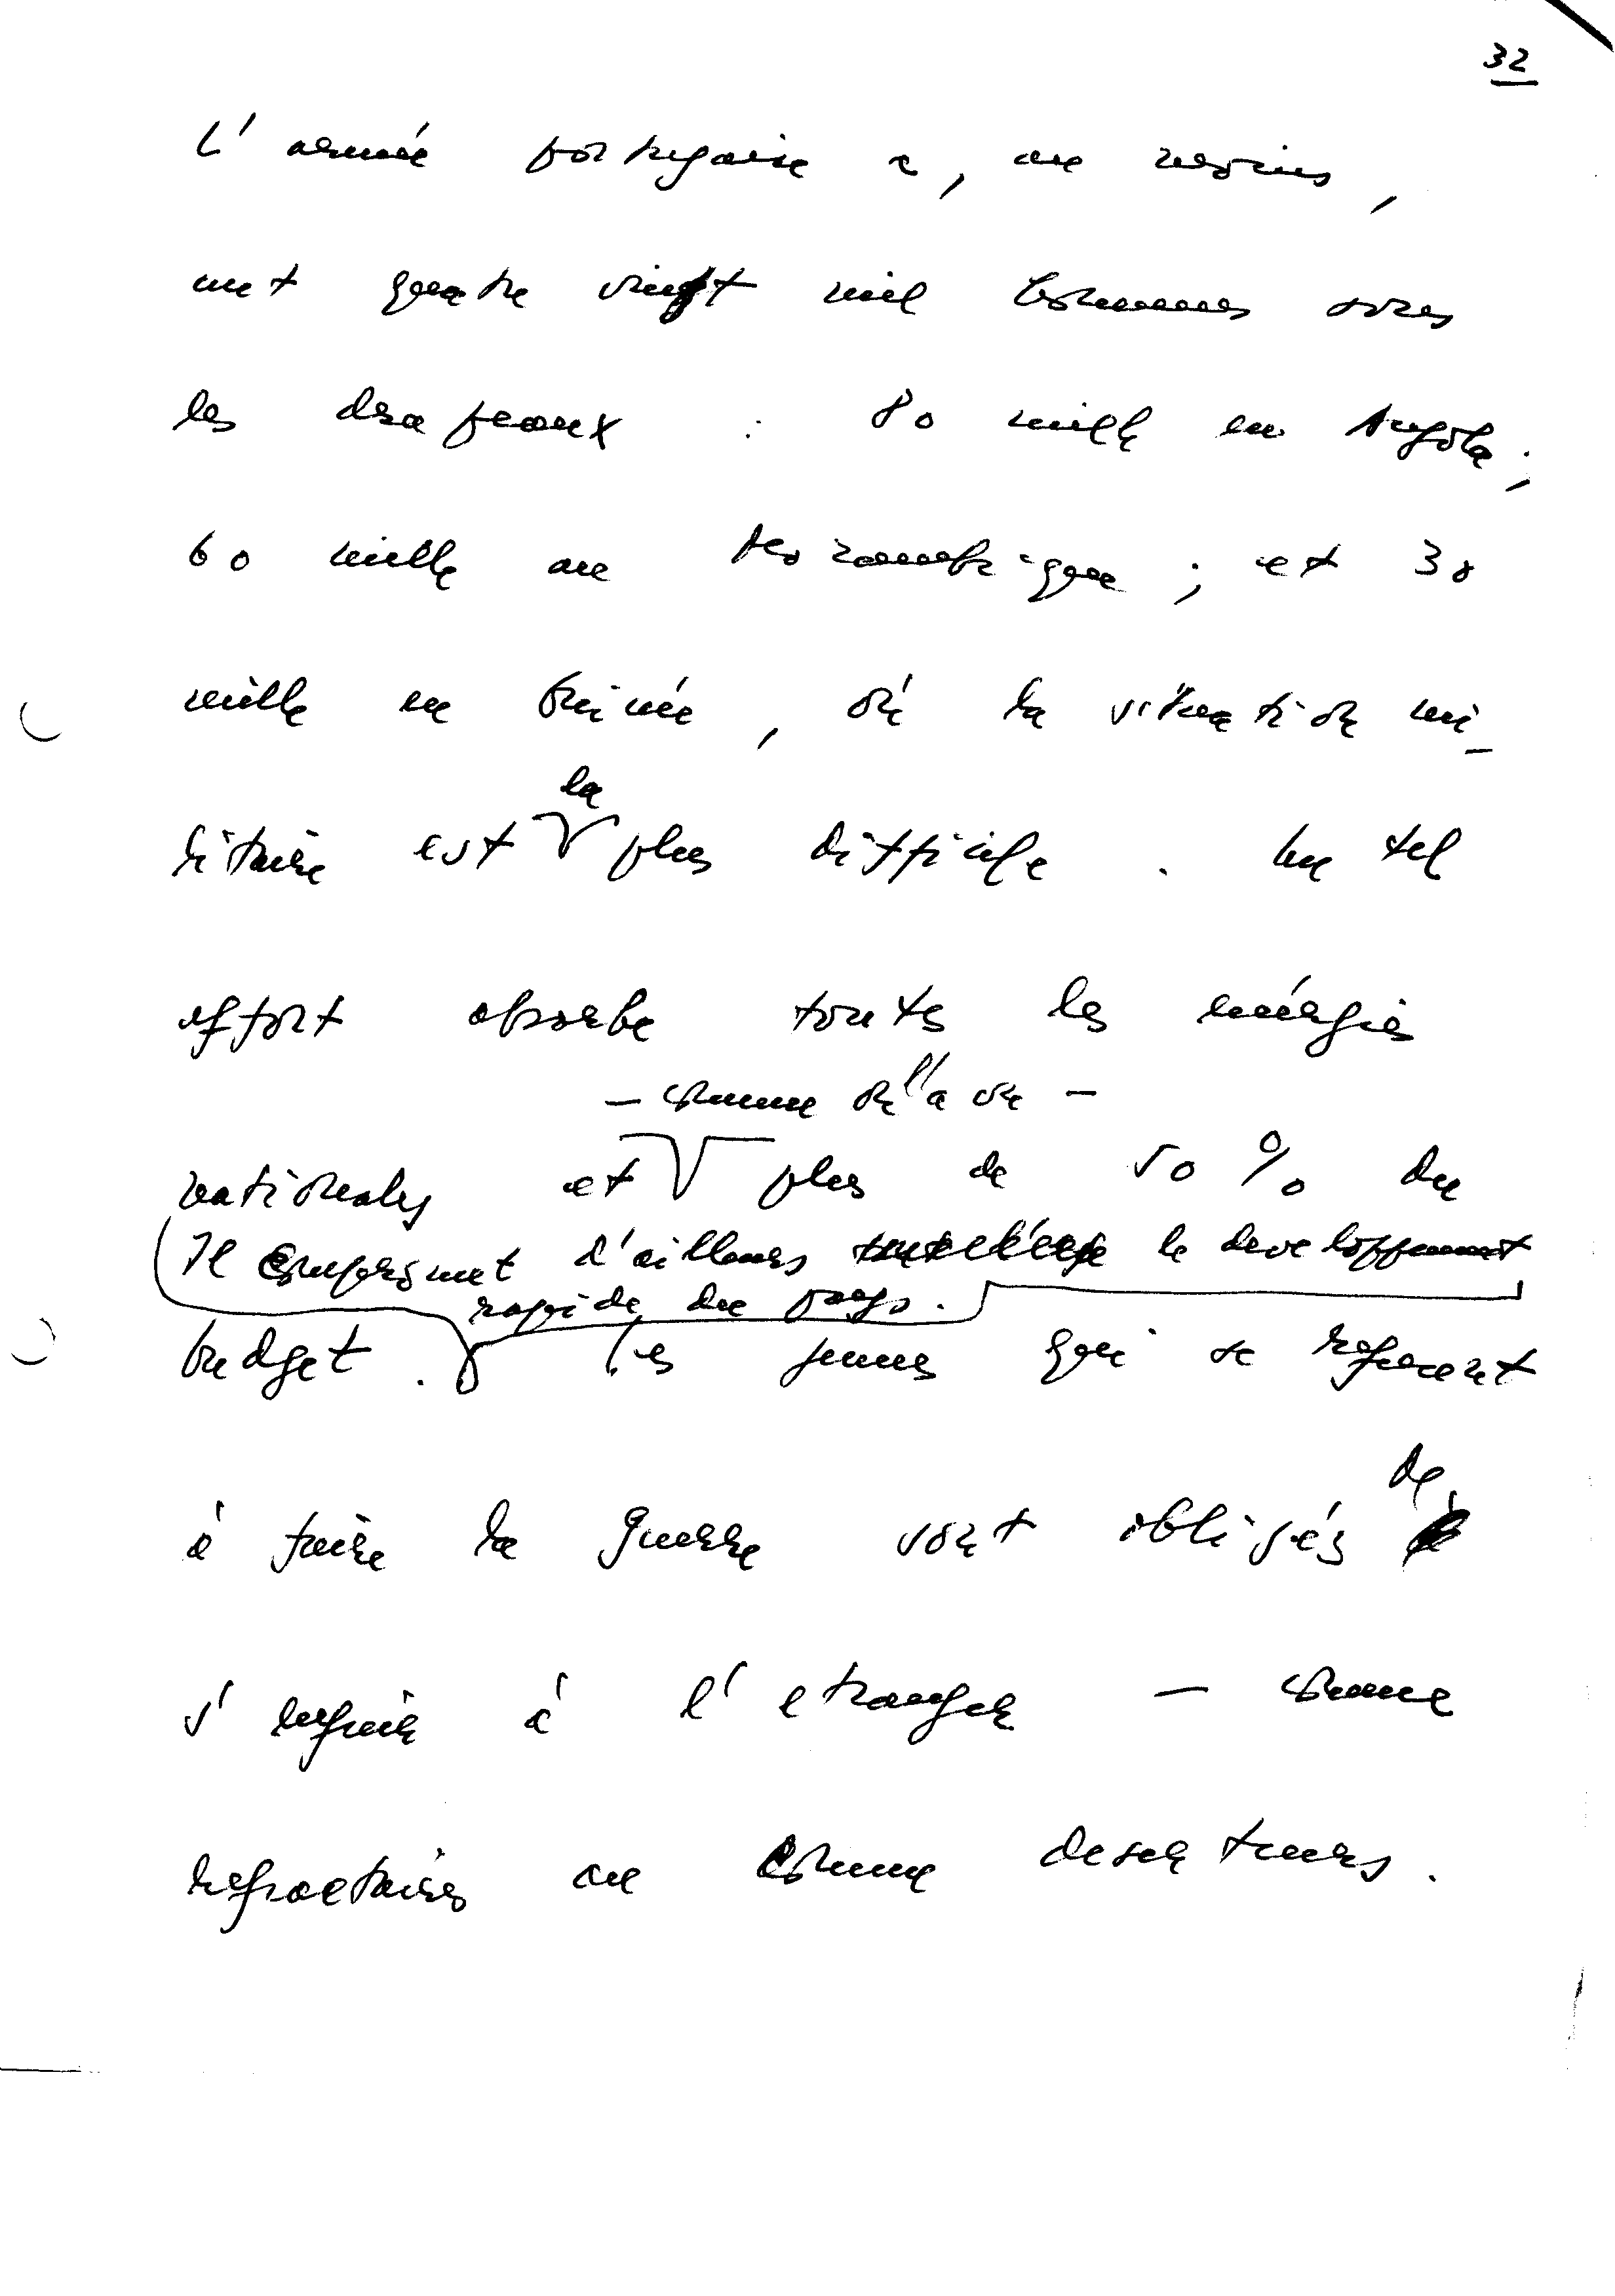 32
L'armée portugaise a, au moins,
cent quatre vingt mil hommes sous
les drapeaux : 80 mille en Angola ;
60 mille au Mozambique ; et 30
mille en Guinée, où la situation mi-
la
litaire est plus difficile. Un tel
effort absorbe toutes les énergies
— comme on l'a vu —
nationales et plus de 50 % du
Il compromet d'ailleurs le developpement
rapide du pays.
budget. Les jeunes qui se refusent
de
à faire la guerre sont obligés
s'enfuir à l'etranger — comme
refractaires ou comme deserteurs.